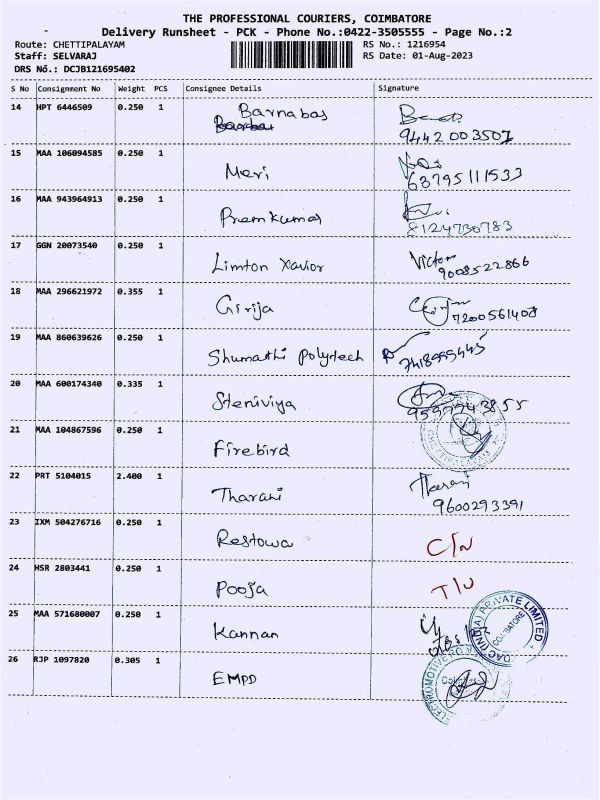 THE PROFESSIONAL COURIERS, COIMBATORE
Delivery Runsheet - PCK - Phone No.:0422-3505555 - Page No.:2
Route: CHETTIPALAYAM RS No.: 1216954
Staff: SELVARAJ RS Date: 01-Aug-2023
DRS No.: DCJB121695402
S No Consignment No Weight PCS Consignee Details Signature
14 HPT 6446509 0.250 1 Barnabas
9442003507
15 MAA 106094585 0.250 1 Meri
63795111533
16 MAA 943964913 0.250 1 Premkumar
8124730783
17 GGN 20073540 0.250 1 Limton Xavior Victor
9008522866
18 MAA 296621972 0.355 1 Girija
7200561408
19 MAA 860639626 0.250 1 Shumathi Polytech
20 MAA 600174340 0.335 1 Steniviya
21 MAA 104867596 0.250 1 Firebird
22 PRT 5104015 2.400 1 Tharani Tharani
9600293391
23 IXM 504276716 0.250 1 Restowa C/N
24 HSR 2803441 0.250 1 Pooja T/U
25 MAA 571680007 0.250 1 Kannan
(INDIA) PRIVATE LIMITED
COIMBATORE
26 RJP 1097820 0.305 1 EMPD